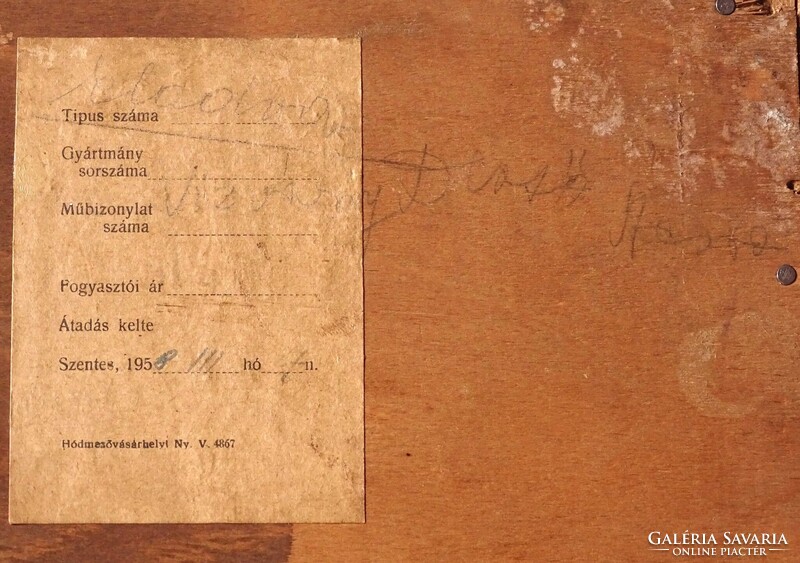 Tipus száma
Gyártmány
sorszáma
Műbizonylat
száma
Fogyasztói ár
Átadás kelte
Szentes, 1958 III hó n.
Hódmezővásárhelyi Ny. V. 4867
GALÉRIA SAVARIA
ONLINE PIACTÉR